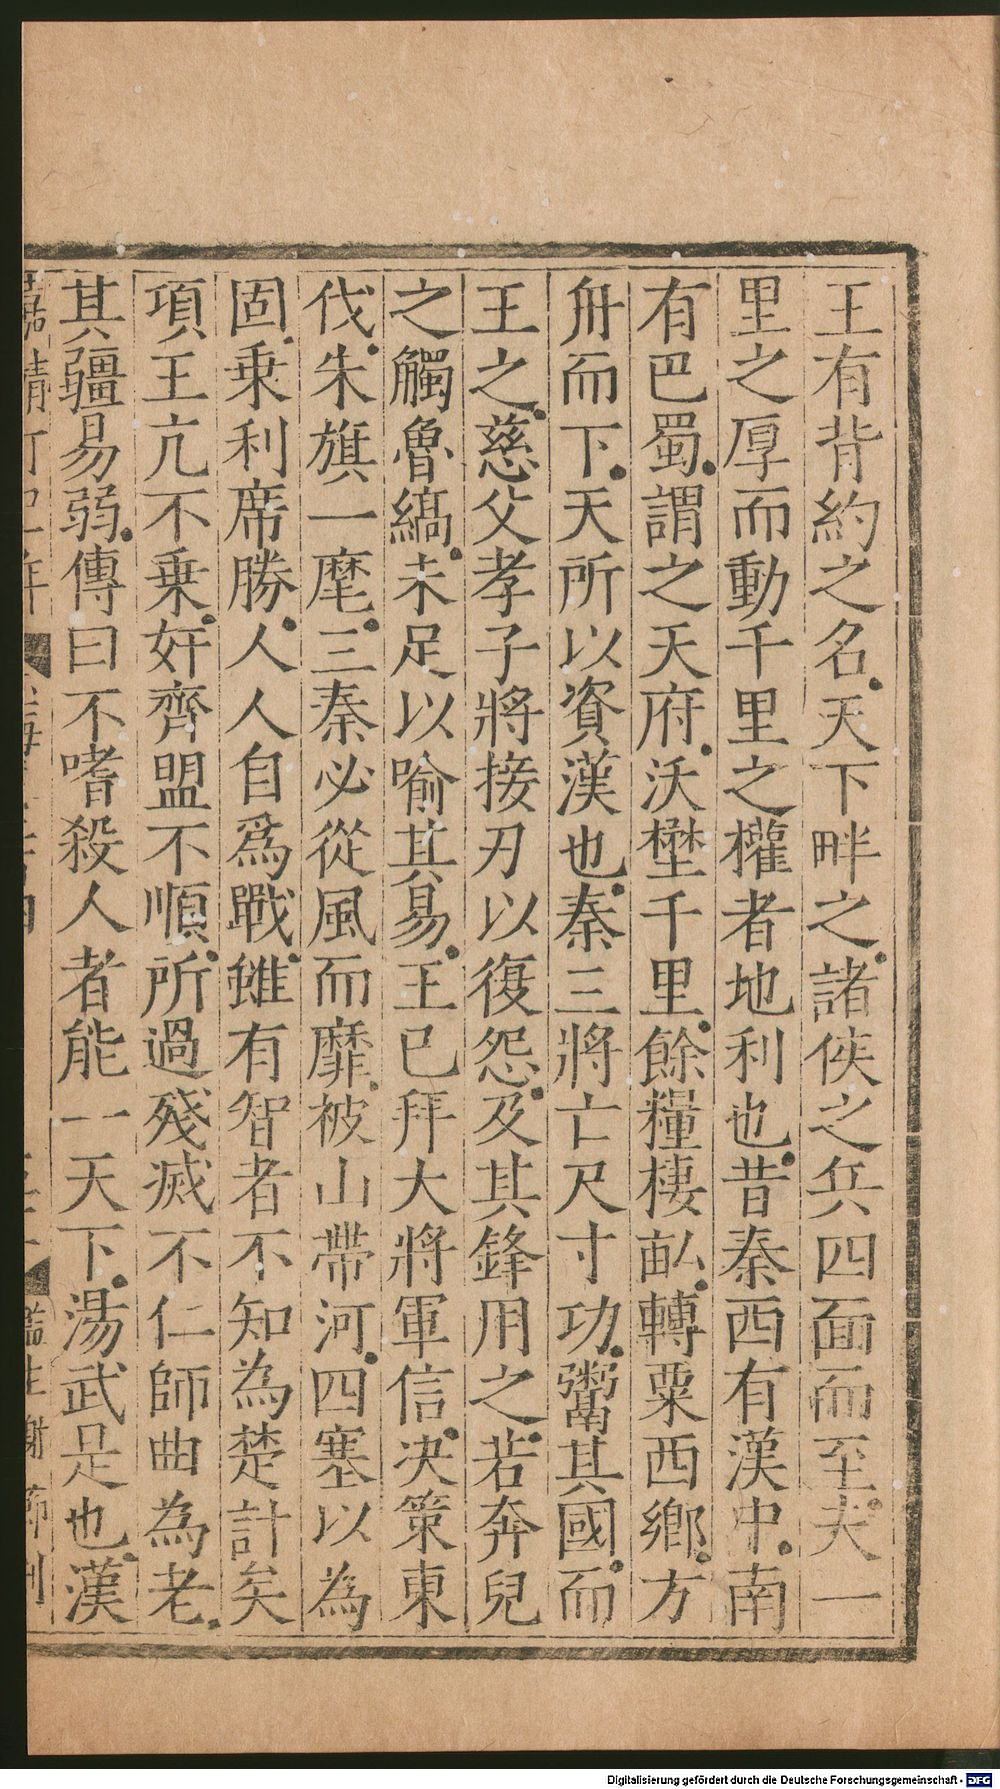 王有背約之名天下畔之諸侯之兵四面而至夫一
里之厚而動千里之權者地利也昔秦西有漢中南
有巴蜀謂之天府沃壄千里餘糧棲畝轉粟西鄉方
舟而下天所以資漢也秦三將亡尺寸功鬻其國而
王之慈父孝子將接刃以復怨及其鋒用之若奔兕
之觸魯縞未足以喻其易王已拜大將軍信決策東
伐朱旗一麾三秦必從風而靡被山帶河四塞以為
固乗利席勝人人自爲戰雖有智者不知為楚計矣
項王亢不乗奸齊盟不順所過殘滅不仁師曲為老
其疆易弱傳曰不嗜殺人者能一天下湯武是也漢
嘉靖丁巳年
監生謝節刊
Digitalisierung gefördert durch die Deutsche Forschungsgemeinschaft - DFG